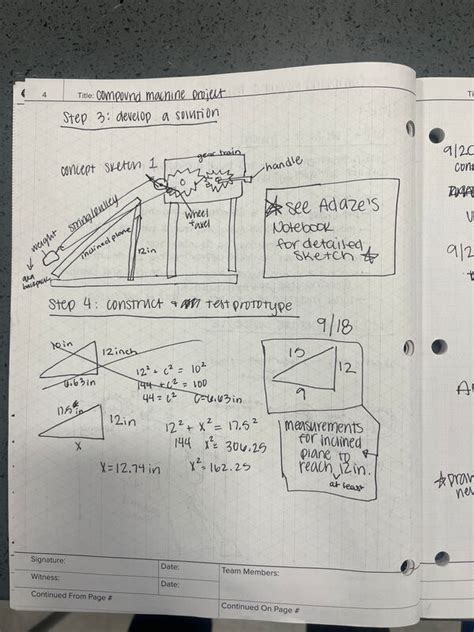 4
Title: compound machine project
Step 3: develop a solution
concept sketch 1
gear train
handle
string/pulley
weight
aka
backpack
inclined plane
12in
wheel
+ axel
See Adaze's
Notebook
for detailed
sketch
Step 4: construct + test prototype
9/18
10in
12inch
6.63in
12² + c² = 10²
144 + c² = 100
44 = c²
c=6.63in
15
12
9
17.5
12in
x
x=12.74in
12² + x² = 17.5²
144 x² = 306.25
x² = 162.25
measurements
for inclined
plane to
reach 12in.
at least
Signature:
Date:
Team Members:
Witness:
Date:
Continued From Page #
Continued On Page #
9/20
9/2